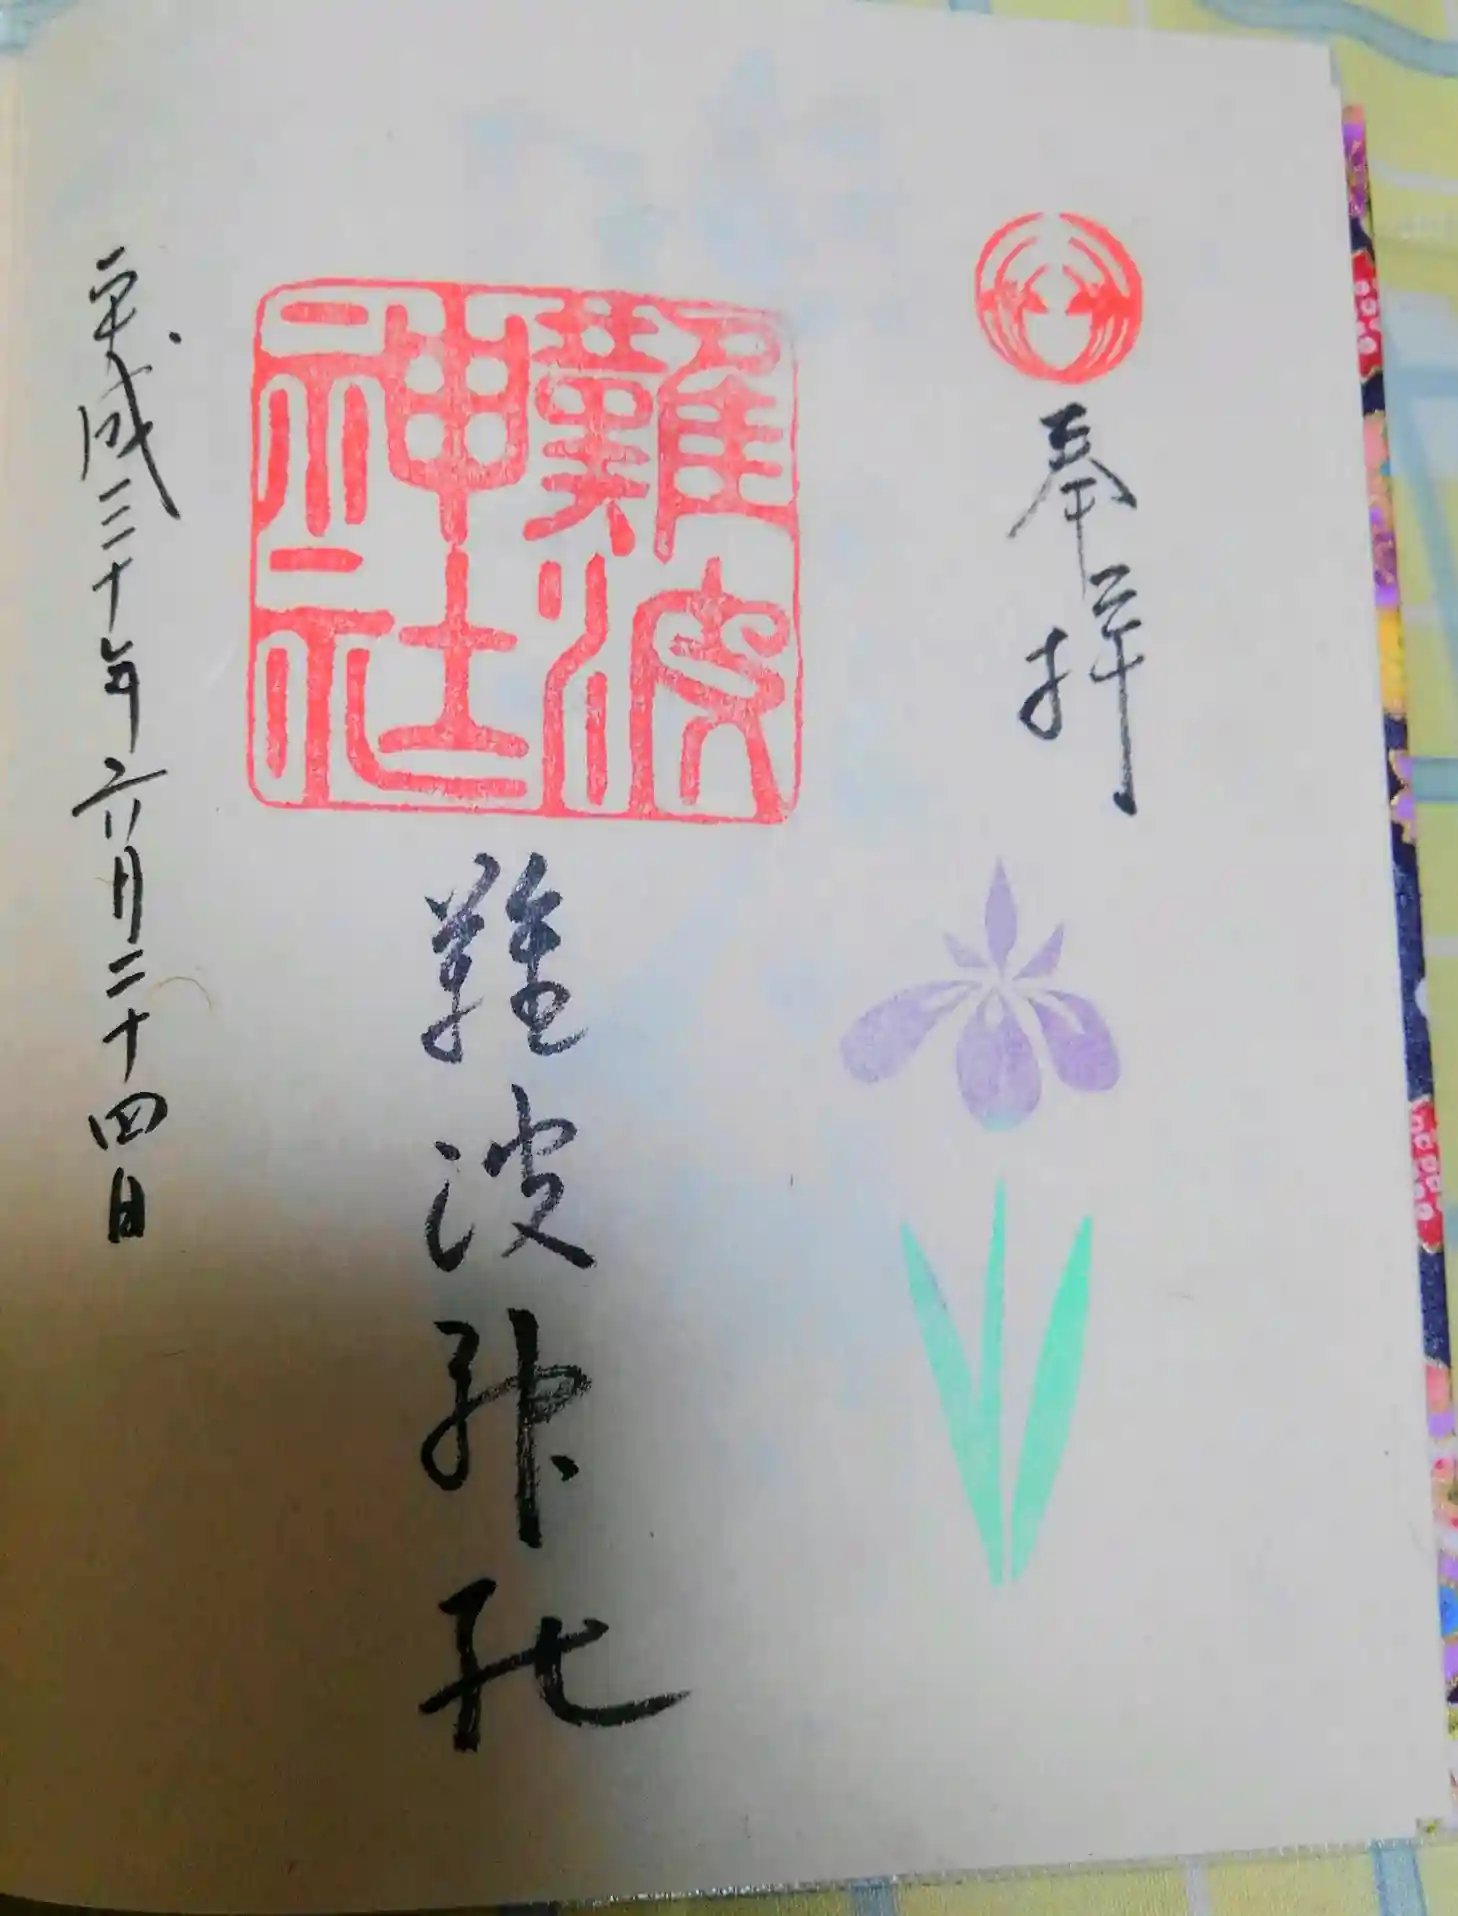 奉拝
難波神社
難波神社
平成三十年六月二十四日